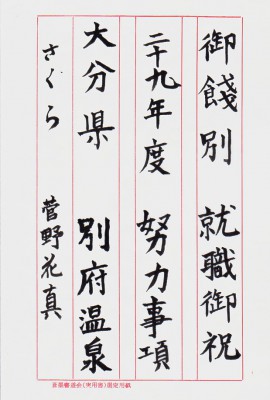 御餞別 就職御祝
二十九年度 努力事項
大分県 別府温泉
さくら 菅野花真